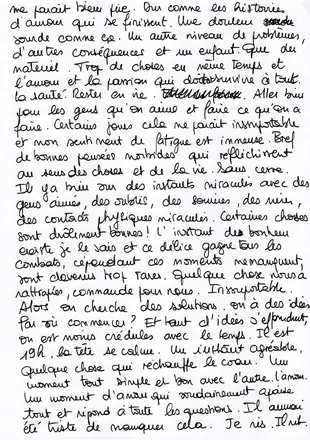 me paraît bien pire. Ou comme les histoires
d'amour qui se finissent. Une douleur
sourde comme ça. Un autre niveau de problèmes,
d'autres conséquences et un enfant. Que du
matériel. Trop de choses en même temps et
l'amour et la passion qui doit survivre à tout.
la santé. Rester en vie. Aller bien
pour les gens qu'on aime et faire ce qu'on a
faire. Certains jours cela me paraît insuportable
et mon sentiment de fatigue est immense. Bref
de bonnes pensées morbides qui réfléchissent
au sens des choses et de la vie. Sans cesse.
Il y a bien eu des instants miraculés avec des
gens aimés, des oublis, des sourires, des rires,
des contacts physiques miraculés. Certaines choses
sont drôlement bonnes! L'instant de bonheur
existe je le sais et ce délice gagne tous les
combats, cependant ces moments me manquent,
sont devenus trop rares. Quelque chose nous a
rattrapés, commande pour nous. Insuportable.
Alors on cherche des solutions. on a des idées
Par où commencer? Et tant d'idées s'effondrent,
on est moins crédules avec le temps. Il est
19h, la tête se calme. Un instant agréable,
quelque chose qui réchauffe le coeur. Un
moment tout simple et bon avec l'autre. l'amour.
Un moment d'amour qui soudainement apaise
tout et répond à toute les questions. Il aurait
été triste de manquer cela. Je ris. Il rit.